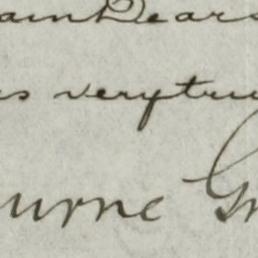 ain Dears
is very tru
urne Gr